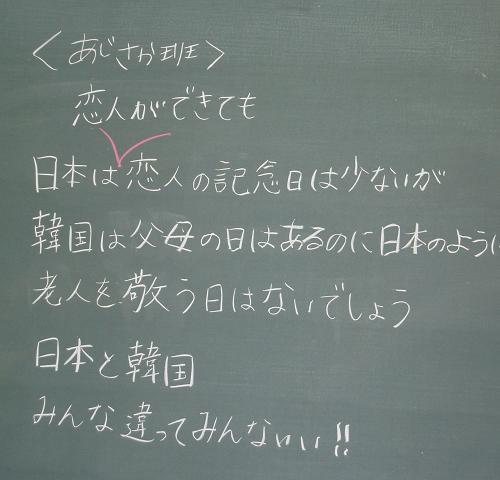 〈あじさか班〉
恋人ができても
日本は恋人の記念日は少ないが
韓国は父母の日はあるのに日本のように
老人を敬う日はないでしょう
日本と韓国
みんな違ってみんないい!!